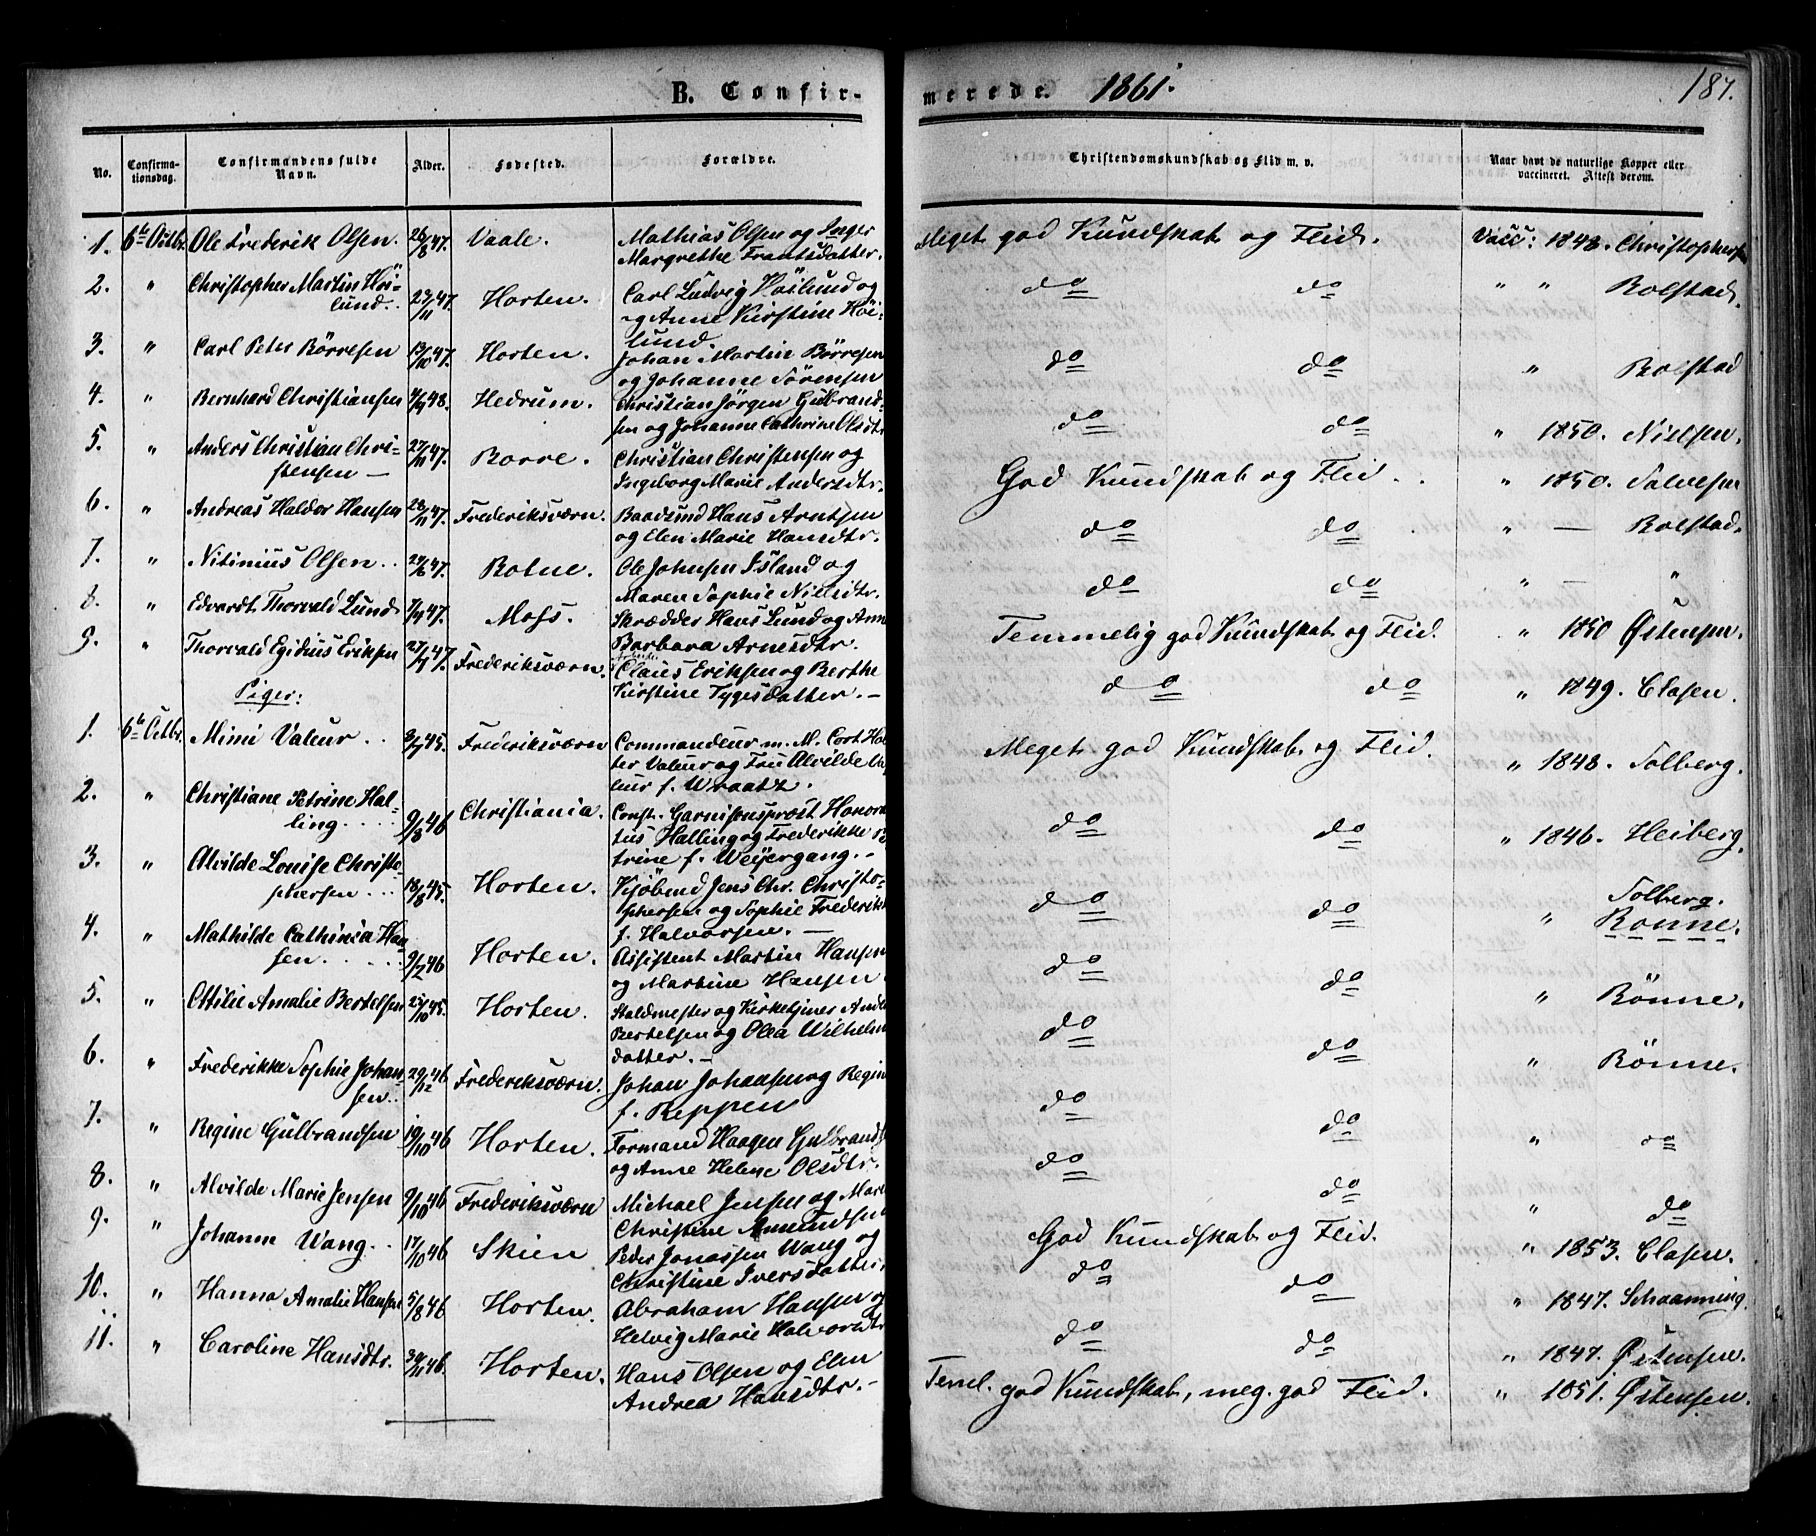 B. Confir-
merede. 1861.
187.
No.
Confirma-
tionsdag.
Confirmandens fulde
Navn.
Alder.
Fødested.
Forældre.
Christendomskundskab og Flid m. v.
Naar havt de naturlige Kopper eller
vaccineret. Attest derom.
1. 6te Octbr. Ole Frederik Olsen. 26/8 47. Vaale. Mathias Olsen og Inger
Margrethe Frantsdatter.
Meget god Kundskab og Flid. Vacc: 1848. Christophersen
2. " Christopher Martin Höi-
lund. 27/11 47. Horten. Carl Ludvig Höilund og
og Anne Kirstine Höi-
lund.
do do " " Bolstad.
3. " Carl Peter Börresen 13/10 47. Horten. Johan Martin Börresen
og Johanne Sörensen
do do " Bolstad
4. " Bernhard Christiansen 48. Hedrum. Christian Jörgen Gulbrand-
sen og Johanne Cathrine Olsdtr.
do do " 1850. Nielsen.
5. " Anders Christian Chri-
stensen — 27/11 47. Borre. Christian Christensen og
Ingeborg Marie Andersdtr.
God Kundskab og Flid. " 1850. Salvesen
6. " Andreas Haldor Hansen 47. Frederiksværn. Baadsmd Hans Arntsen
og Elen Marie Hansdtr.
do do " — Bolstad.
7. " Nitinius Olsen. 47. Botne. Ole Johnsen Island og
Maren Sophie Nielsdtr.
do do " — "
8. " Edvardt Thorvald Lund 47. Moss. Skrædder Hans Lund og Ann
Barbara Arnesdtr.
Temmelig god Kundskab og Flid. " 1850 Østensen.
9. " Thorvald Egidius Eriksen 47. Frederiksværn. Claus Eriksen og Berthe
Kirstine Tygesdatter. —
do do " 1849. Clasen.
Piger:
1. 6te Octbr. Mimi Valeur . . 45. Frederiksværn Commandeur m. M. Cort Hol
ter Valeur og Fru Alvilde Va
leur f. Wraatz.
Meget god Kundskab og Flid. " 1848. Solberg.
2. " Christiane Petrine Hal-
ling. . . . 9/8 46 Christiania. Const. Garnisonsprost Honora
tus Halling og Frederikke
trine f. Weyergang. —
do do " 1846. Heiberg.
3. " Alvilde Louise Christo
phersen . . . 18/8 45. Horten. Kjöbmd Jens Chr. Christo-
phersen og Sophie Frederikk
f. Halvorsen. —
do do " Solberg.
Ronne.
4. " Mathilde Cathinca Han
sen. . . . 9/2 46 Horten. Assistent Martin Hansen
og Martine Hansen
do do
5. " Ottilie Amalie Bertelsen 25/10 45. Horten. Staldmester og Kirketjener Ande
Bertelsen og Olea Wilhelm
datter. —
do do " Rönne.
6. " Frederikke Sophie Johan-
sen. . 29/12 46 Frederiksværn. Johan Johansen og Regin
f. Reppen
do do " Rönne.
7. " Regine Gulbrandsen 19/10 46 Horten. Formand Haagen Gulbrands
og Anne Helene Olsdtr.
do do " do
8. " Alvilde Marie Jensen 9/10 46 Frederiksværn Michael Jensen og Mare
Christine Amundsen
do do " do
9. " Johanne Wang. . 17/10 46 Skien Peder Jonassen Wang og
Christine Iversdatter.
God Kundskab og Flid. " 1853. Clasen.
10. " Hanna Amalie Hansen 5/8 46 Horten. Abraham Hansen og
Helvig Marie Halvorsdtr
do do " 1847. Schaanning.
11. " Caroline Hansdtr. 30/11 46. Horten. Hans Olsen og Elen
Andrea Hansdtr. —
do do " 1847. Østensen.
Teml. god Kundskab, meg. god Flid. " 1851. Østensen.